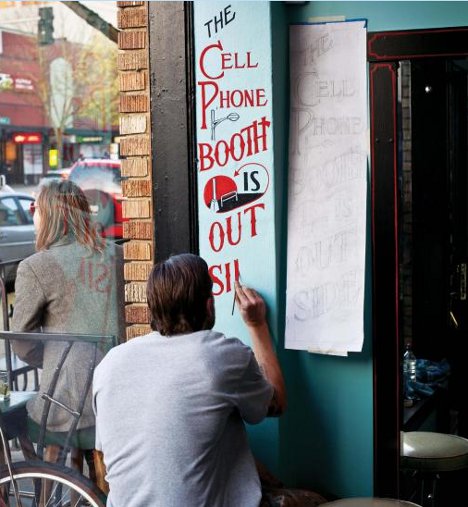 THE
CELL
PHONE
BOOTH
IS
OUT
SI
THE
CELL
PHONE
OUT
SIDE